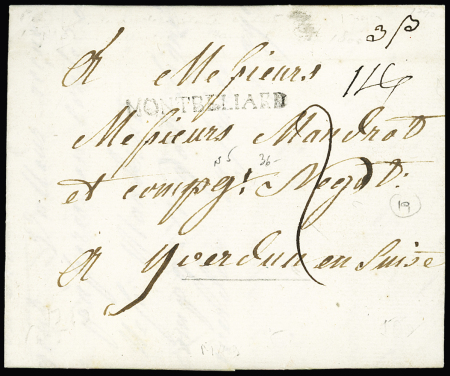 3/3
A Messieurs
146
MONTBELIARD
Messieurs Mandrot
N 5 36-
et compg.e Negot:
19
A Yverdun en Suise